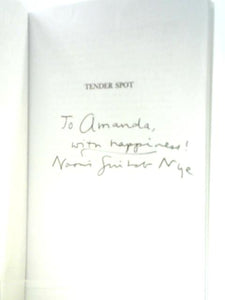 TENDER SPOT
To Amanda,
with happiness!
Naomi Shihab Nye